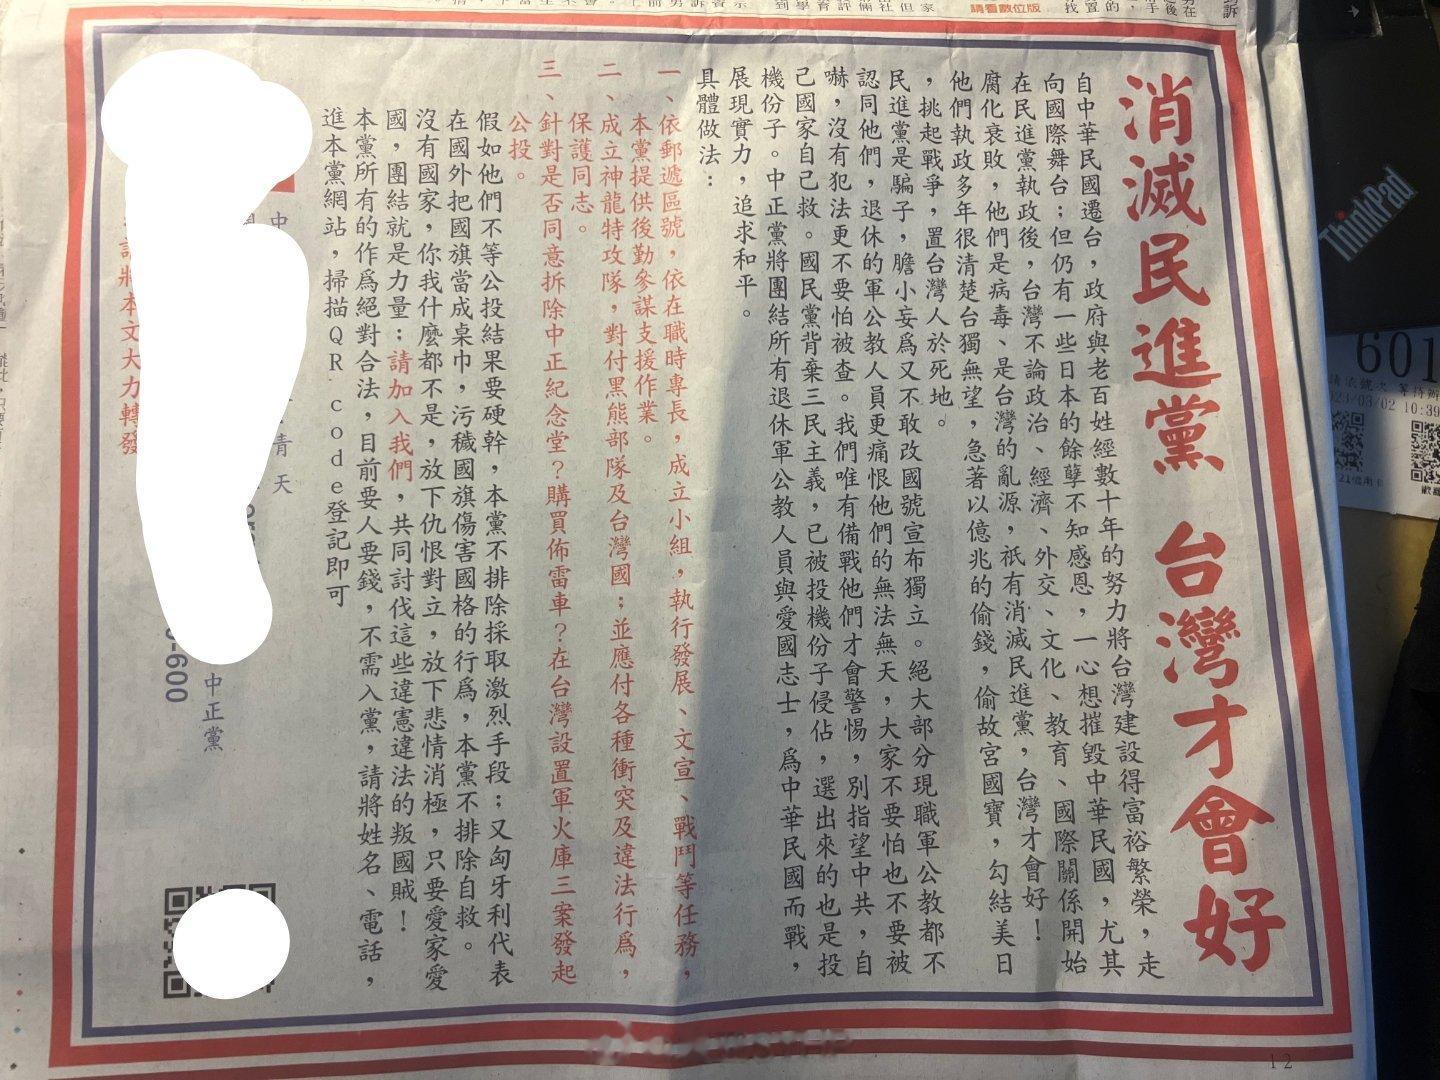 消滅民進黨　台灣才會好
自中華民國遷台，政府與老百姓經數十年的努力將台灣建設得富裕繁榮，走
向國際舞台；但仍有一些日本的餘孽不知感恩，一心想摧毀中華民國，尤其
在民進黨執政後，台灣不論政治、經濟、外交、文化、教育、國際關係開始
腐化衰敗，他們是病毒、是台灣的亂源，祇有消滅民進黨，台灣才會好！
他們執政多年很清楚台獨無望，急著以億兆的偷錢，偷故宮國寶，勾結美日
，挑起戰爭，置台灣人於死地。
民進黨是騙子，膽小妄為又不敢改國號宣布獨立。絕大部分現職軍公教都不
認同他們，退休的軍公教人員更痛恨他們的無法無天，大家不要怕也不要被
嚇，沒有犯法更不要怕被查。我們唯有備戰他們才會警惕，別指望中共，自
己國家自己救。國民黨背棄三民主義，已被投機份子侵佔，選出來的也是投
機份子。中正黨將團結所有退休軍公教人員與愛國志士，為中華民國而戰，
展現實力，追求和平。
具體做法：
一、依郵遞區號，依在職時專長，成立小組，執行發展、文宣、戰鬥等任務，
本黨提供後勤參謀支援作業。
二、成立神龍特攻隊，對付黑熊部隊及台灣國；並應付各種衝突及違法行為，
保護同志。
三、針對是否同意拆除中正紀念堂？購買佈雷車？在台灣設置軍火庫三案發起
公投。
假如他們不等公投結果要硬幹，本黨不排除採取激烈手段；又匈牙利代表
在國外把國旗當成桌巾，污穢國旗傷害國格的行為，本黨不排除自救。
沒有國家，你我什麼都不是，放下仇恨對立，放下悲情消極，只要愛家愛
國，團結就是力量：請加入我們，共同討伐這些違憲違法的叛國賊！
本黨所有的作為絕對合法，目前要人要錢，不需入黨，請將姓名、電話，
進本黨網站，掃描QR code登記即可
中
青天
中正黨
009-
將本文大力轉發
12
ThinkPad
601
023/03/02 10:39
請看數位版